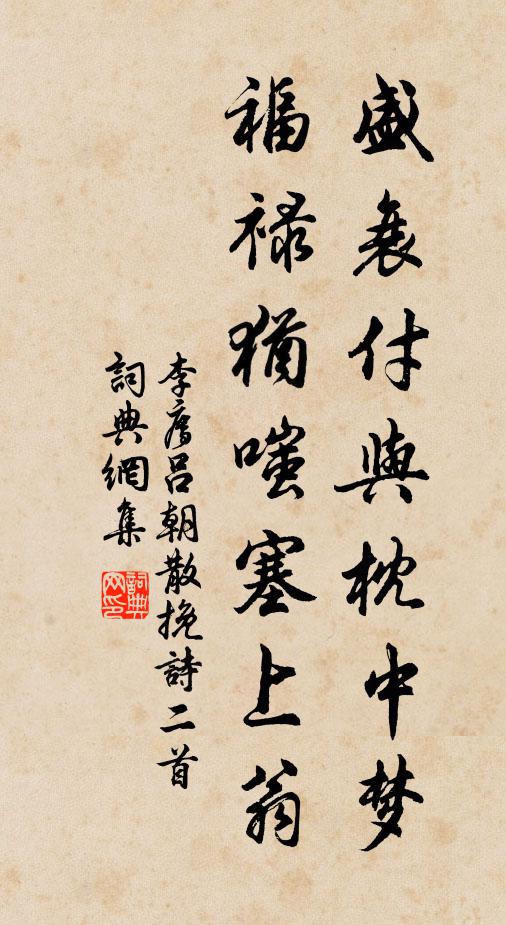 盛衰付與枕中梦
福禄猶嗤塞上翁
李廌吕朝散挽詩二首
詞典網集
詞典网印